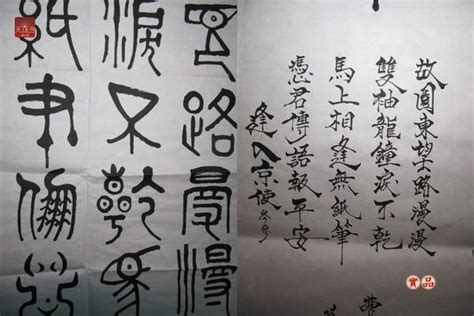 故園東望路漫漫
雙袖龍鐘淚不乾
馬上相逢無紙筆
憑君傳語報平安
逢入京使 岑參
實品
路曼漫
淚不乾馬
紙聿